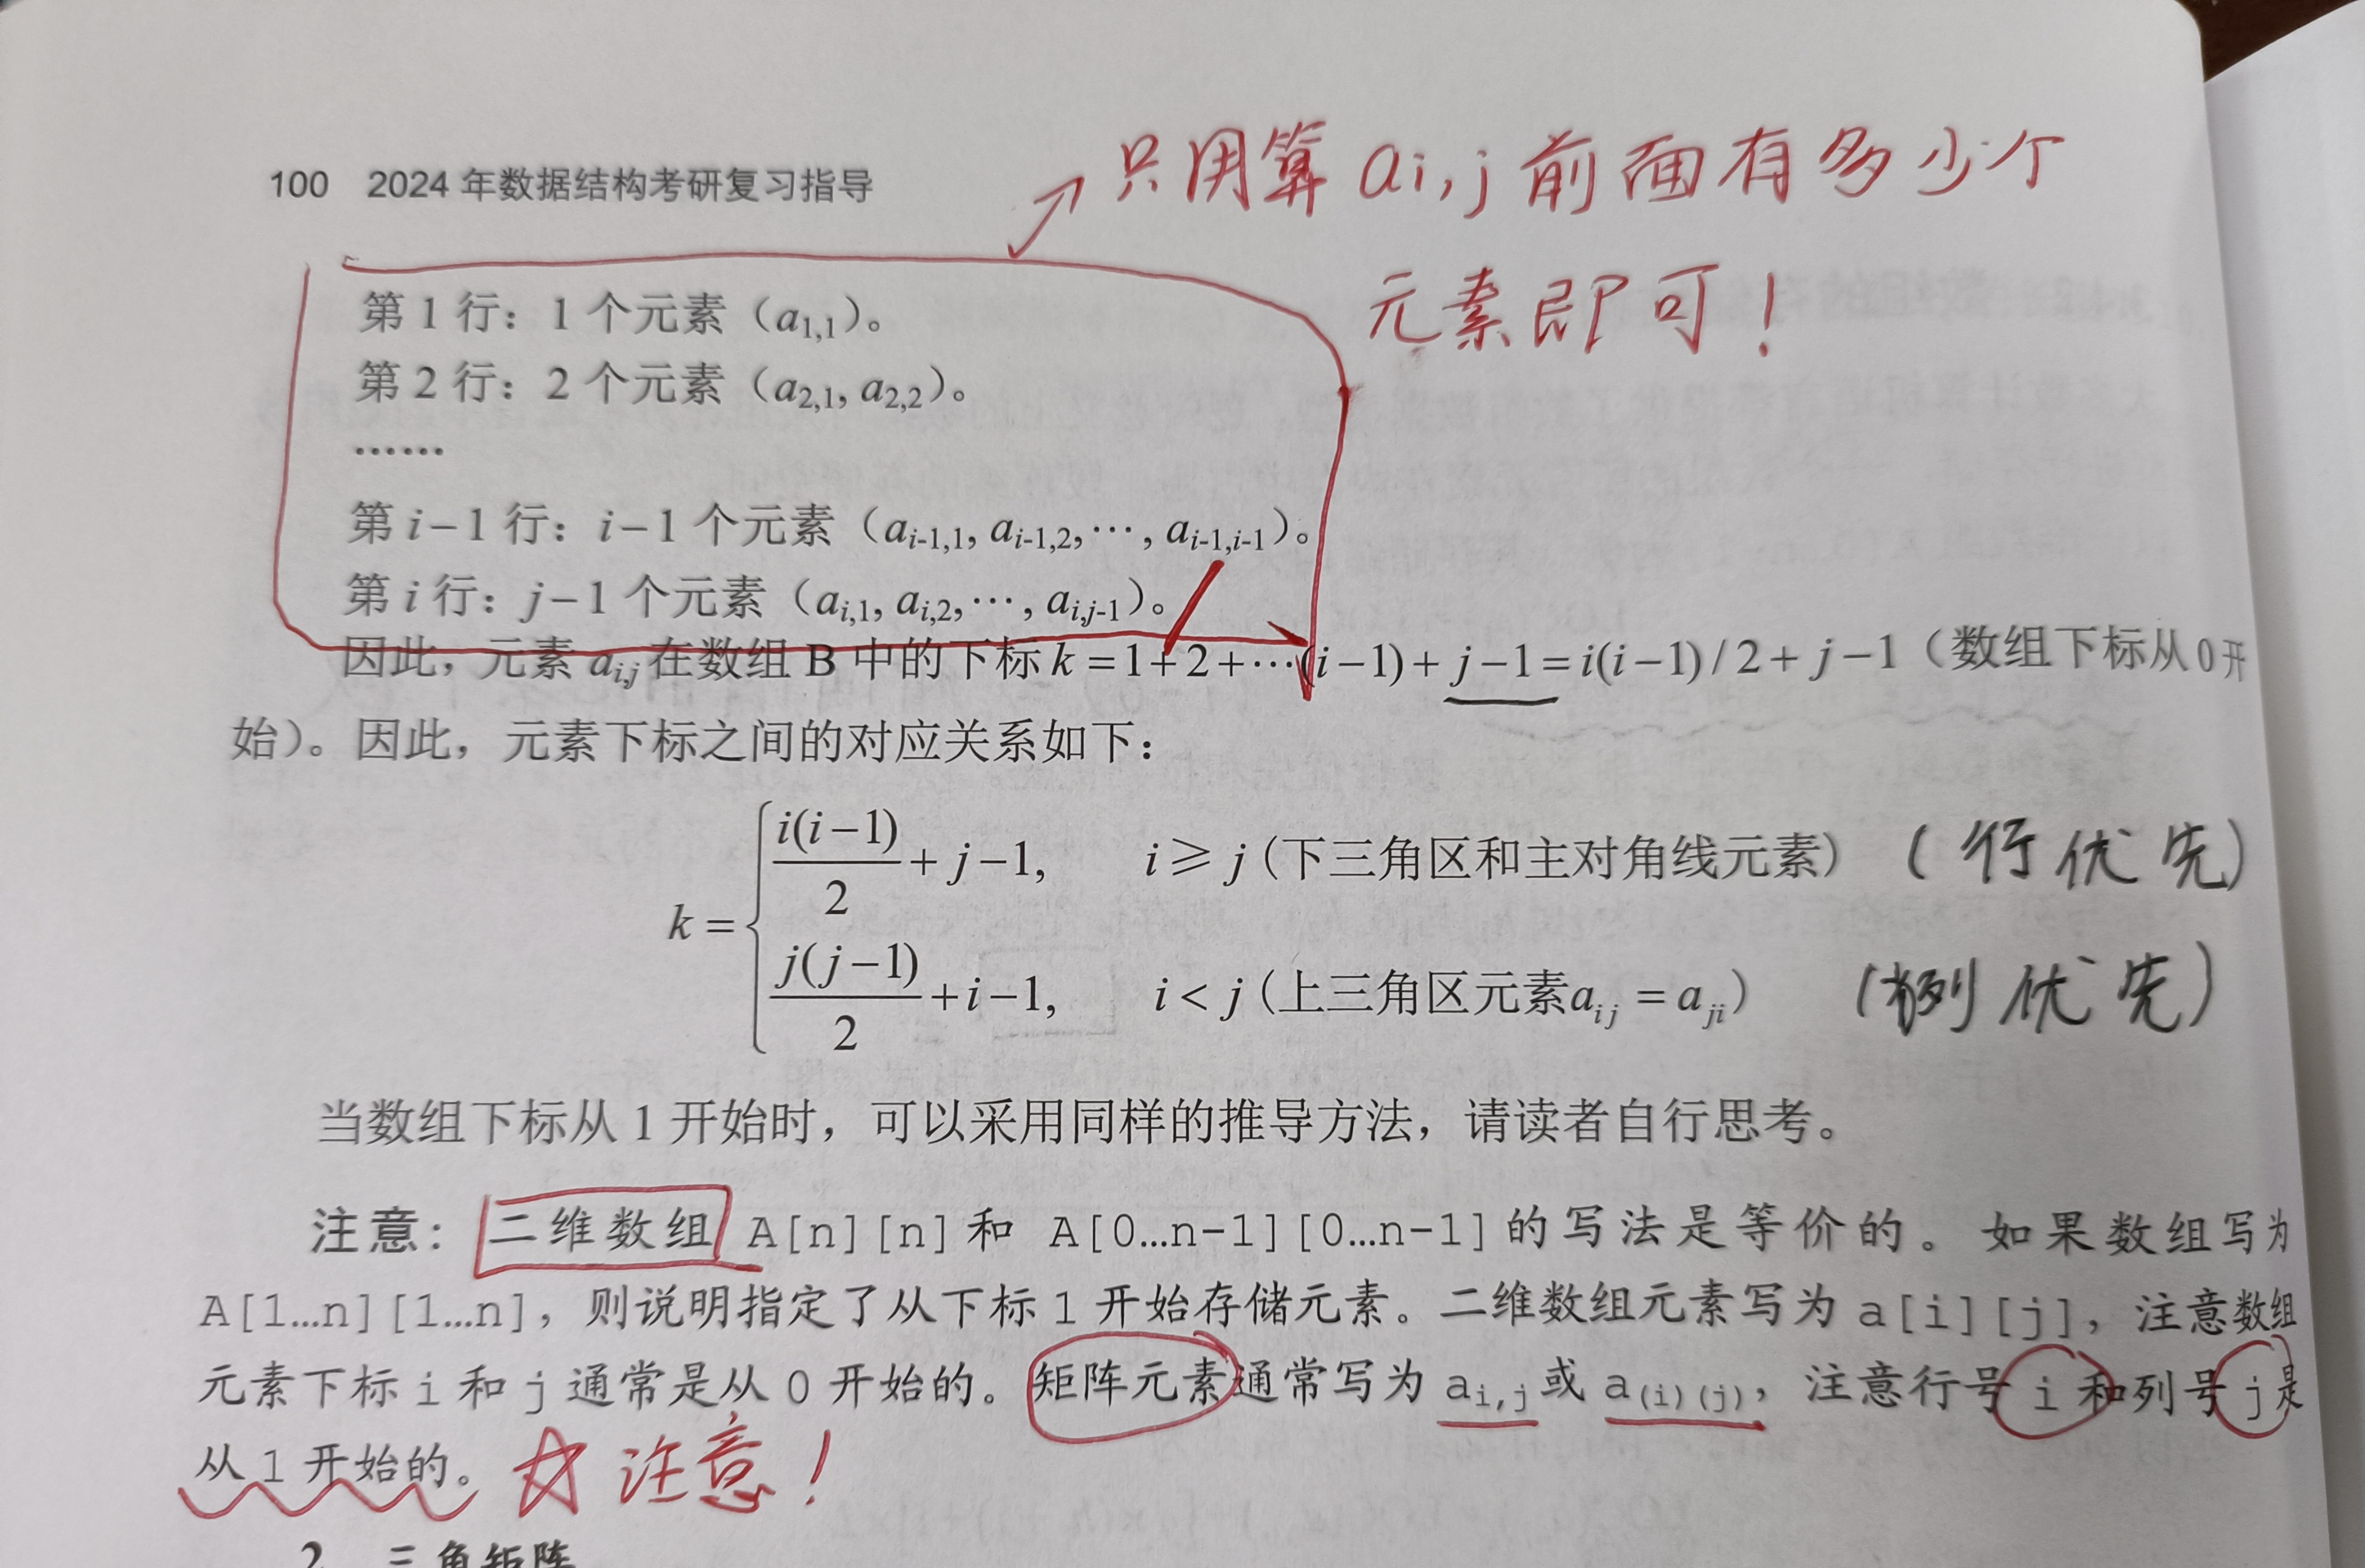 100 2024 年数据结构考研复习指导
只用算 ai,j 前面有多少个
元素即可!
第 1 行：1 个元素（a1,1）。
第 2 行：2 个元素（a2,1, a2,2）。
……
第 i−1 行：i−1 个元素（ai-1,1, ai-1,2,⋯, ai-1,i-1）。
第 i 行：j−1 个元素（ai,1, ai,2,⋯, ai,j-1）。
因此，元素 ai,j 在数组 B 中的下标 k = 1+2+⋯(i−1)+ j−1= i(i−1)/2+ j−1（数组下标从 0 开
始）。因此，元素下标之间的对应关系如下：
k = { i(i−1)/2 + j−1, i ≥ j (下三角区和主对角线元素) (行优先)
j(j−1)/2 +i−1, i < j (上三角区元素aij = aji) (列优先)
当数组下标从 1 开始时，可以采用同样的推导方法，请读者自行思考。
注意：二维数组 A[n][n] 和 A[0…n-1][0…n-1] 的写法是等价的。如果数组写为
A[1…n][1…n]，则说明指定了从下标 1 开始存储元素。二维数组元素写为 a[i][j]，注意数组
元素下标 i 和 j 通常是从 0 开始的。矩阵元素通常写为 ai,j 或 a(i)(j)，注意行号 i 和列号 j 是
从 1 开始的。☆ 注意!
2. 三角矩阵